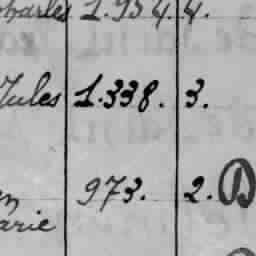 Charles 1.954. 4.
Jules 1.338. 3.
973. 2. D
arie